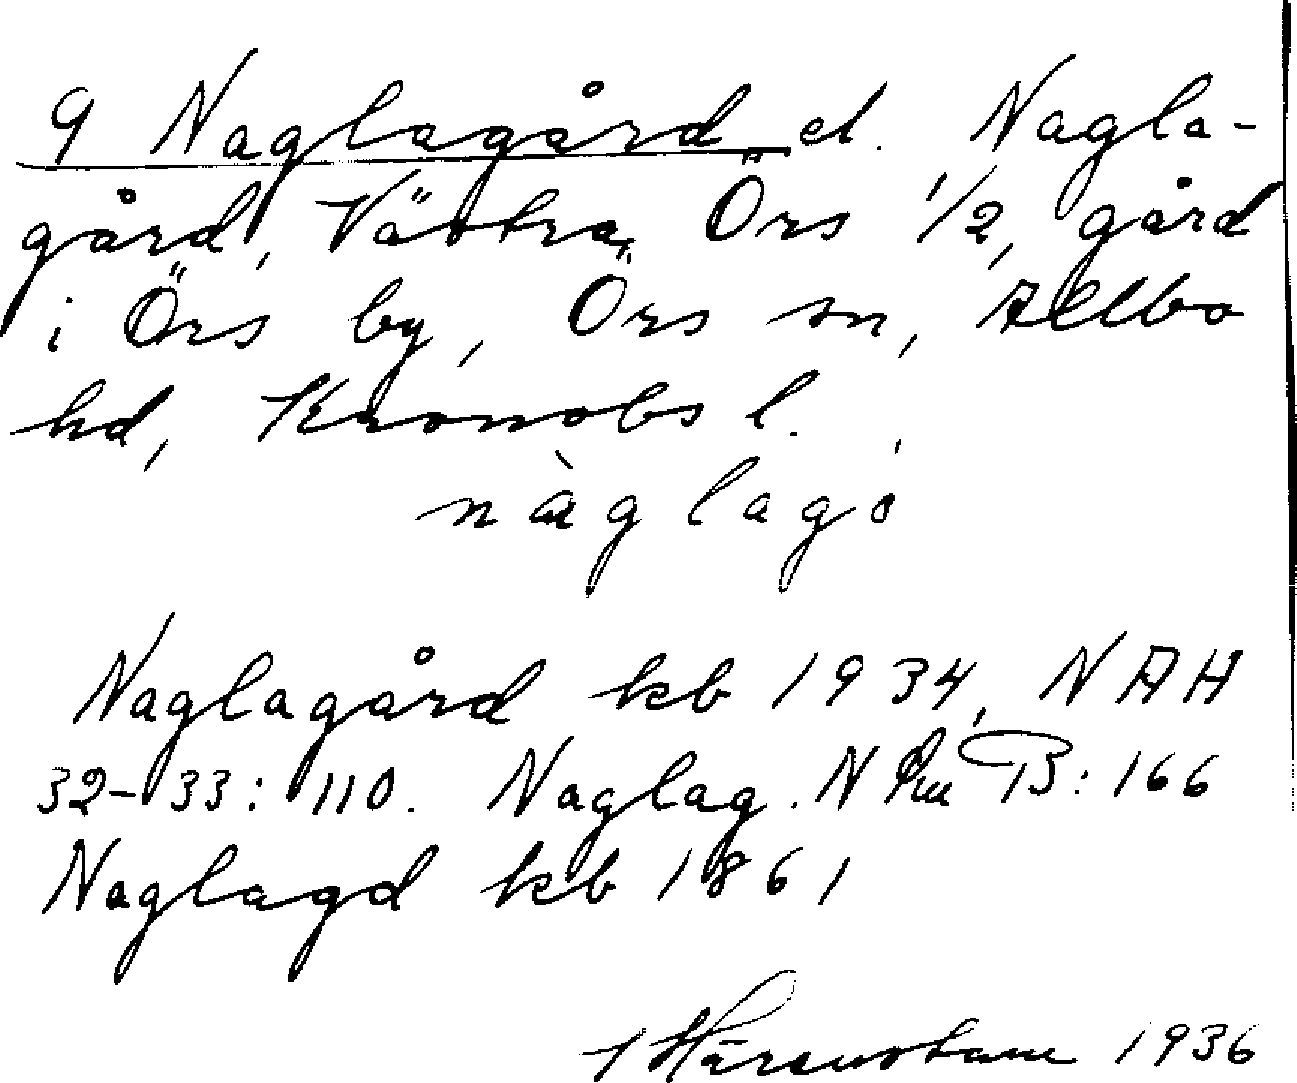 9 Naglagård el. Nagla-
gård, Västra, Örs 1/2, gård
i Örs by, Örs sn, Allbo
hd, Kronobs l.
nàglagȯ
Naglagård kb 1934, NAH
32-33: 110. Naglag. N B: 166
Naglagd kb 1861
1936